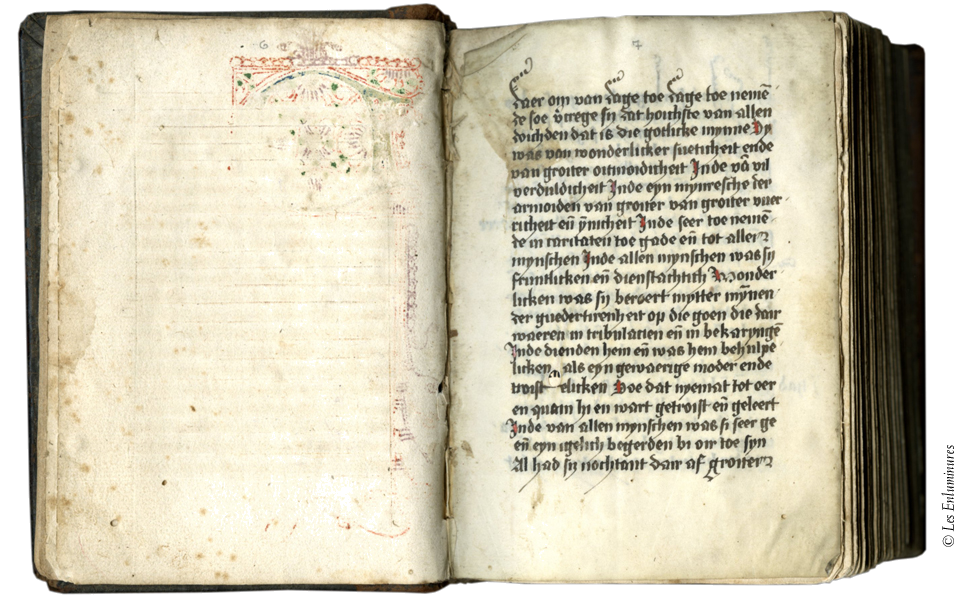 6
7
daer om van dage toe dage toe nemē
de soe v̄crege sij dat hoichste van allen
doichden dat is die gotlicke mynne Sy
was van wonderlicker sueticheit ende
van groiter oitmoidicheit Inde vā vil
verduldicheit Inde eyn mynresche der
armoiden van groiter van groiter vuer
richeit eñ ȳnicheit Inde seer toe nemē
de in caritaten toe gade eñ tot aller
mynschen Inde allen mynschen was sij
frintlicken eñ dienstachtich Wonder
licken was sij beroert mytter mȳnen
der guedertirenheit op die goen die dair
waeren in tribulacien eñ in bekaryngē
Inde dienden hem eñ was hem behulpe
licken als eyn gewaerige moder ende
troist elicken Soe dat nyemat tot oer
en quam hi en wart getroist eñ geleert
Inde van allen mynschen was si seer ge
eñ eyn igelich begerden bi oir toe syn
Al had sij nochtant dair af groiter
© Les Enluminures